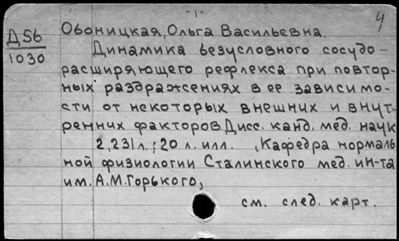 - 1 -
4
Д56
1030
Обоницкая, Ольга Васильевна.
Динамика безусловного сосудо-
расширяющего рефлекса при повтор-
ных раздражениях в ее зависимо-
сти от некоторых внешних и внут-
ренних факторов. Дисс. канд. мед. наук
2,231л.; 20 л. илл. , Кафедра нормаль
ной физиологии Сталинского мед. ин-та
им. А.М.Горького,
см. след. карт.